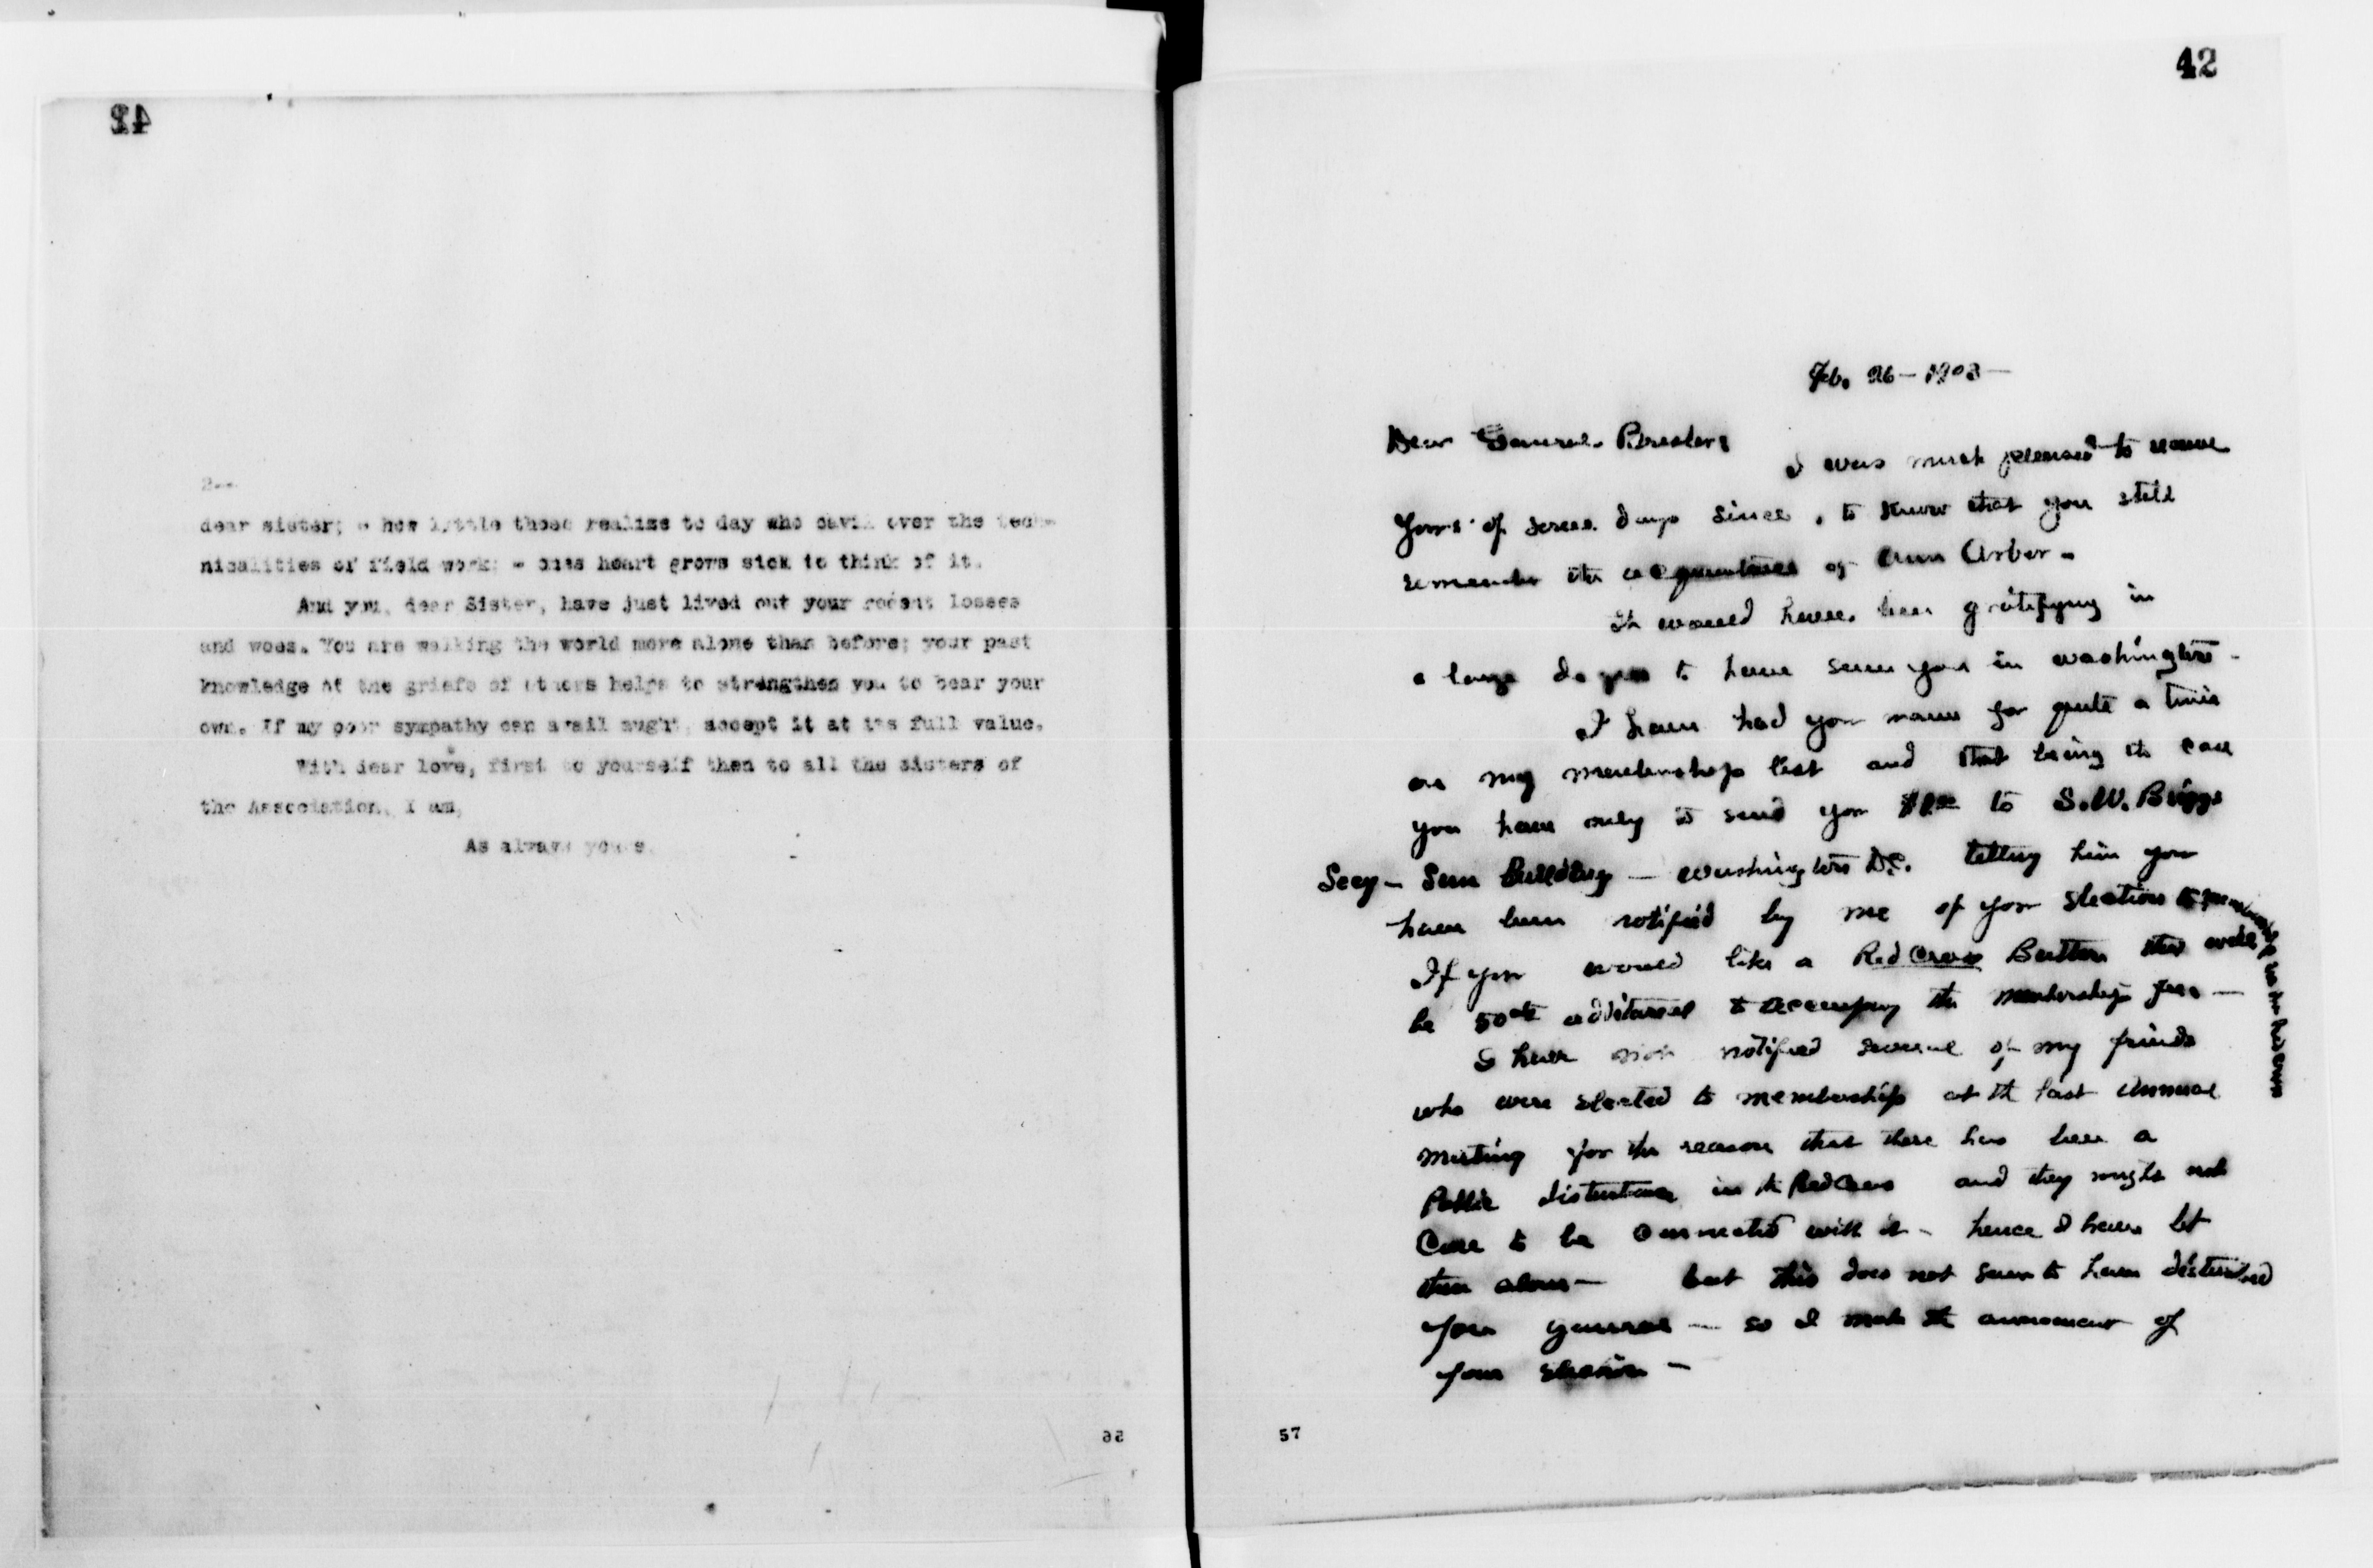 42
2--
dear sister; - how little those realize to day who cavil over the tech-
nicalities of field work; - ones heart grows sick to think of it.
And you, dear Sister, have just lived out your recent losses
and woes. You are walking the world more alone than before; your past
knowledge of the griefs of others helps to strengthen you to bear your
own. If my poor sympathy can avail aught, accept it at its full value.
With dear love, first to yourself then to all the sisters of
the Association, I am,
As always yours.
56
42
Feb. 26 - 1903 -
Dear
I was much pleased to
yours of days since, to know that you still
remember the of Ann Arbor -
It would have been gratifying in
a large degree to have seen you in Washington -
I have had your name for quite a time
on my membership list and that being the case
you have only to send your to S.W. Briggs
Secy - Sun Building - Washington D.C. telling him you
have been notified by me of your election to membership
If you would like a Red Cross Button that will
be 50cts additional to accompany the membership fee -
I have not notified several of my friends
who were elected to membership at the last Annual
meeting for the reason that there has been a
Public disturbance in the Red Cross and they might not
Care to be connected with it - hence I have let
them alone - but this does not seem to have disturbed
your - so I make the of
your election -
57